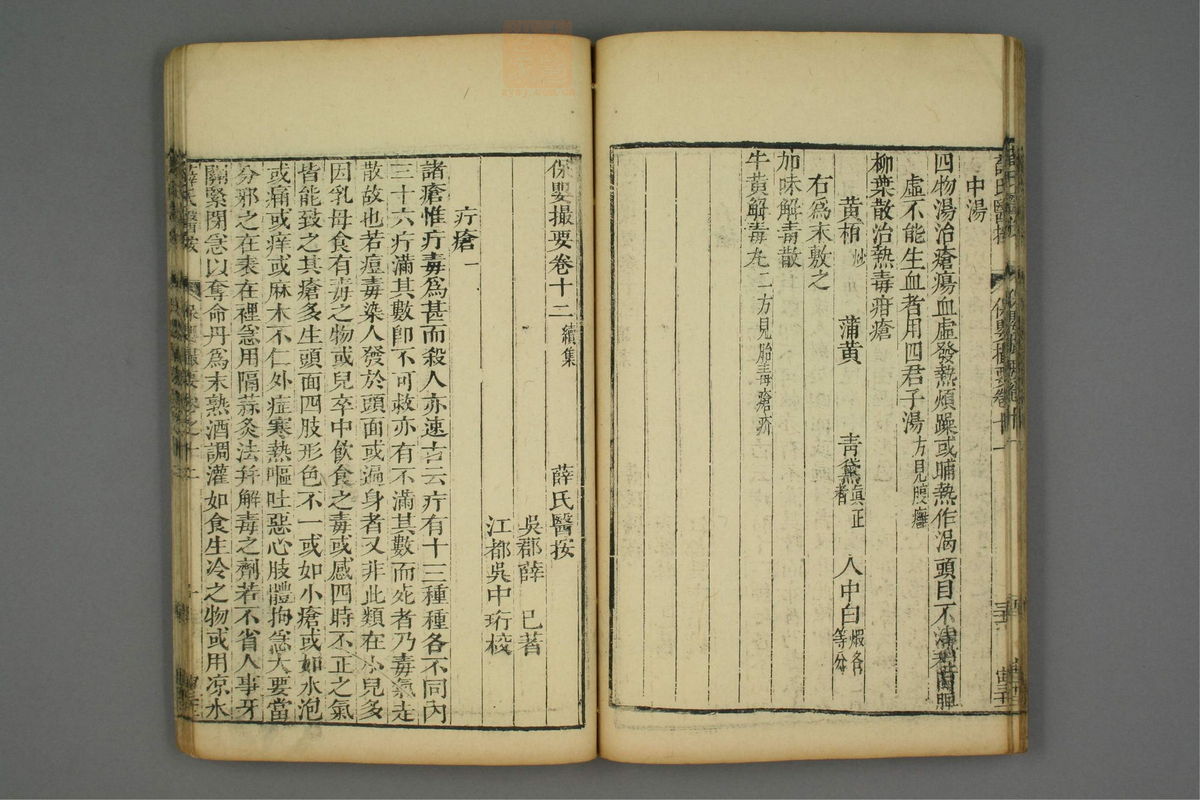 中湯
四物湯治瘡瘍血虛發熱煩躁或晡熱作渴頭目不
虛不能生血者用四君子湯方見腹癰
柳葉散治熱毒疳瘡
黃栢炒 蒲黃 青黛真正者 人中白煆各等分
右爲末敷之
加味解毒散
牛黃解毒丸二方見胎毒瘡疥
保嬰撮要卷十二續集 薛氏醫按
吳郡薛 已著
江都吳中珩校
疔瘡一
諸瘡惟疔毒爲甚而殺人亦速古云疔有十三種種各不同內
三十六疔滿其數即不可救亦有不滿其數而死者乃毒氣走
散故也若痘毒染人發於頭面或遍身者又非此類在小兒多
因乳母食有毒之物或兒卒中飲食之毒或感四時不正之氣
皆能致之其瘡多生頭面四肢形色不一或如小瘡或如水泡
或痛或痒或麻木不仁外症寒熱嘔吐惡心肢體拘急大要當
分邪之在表在裡急用隔蒜灸法并解毒之劑若不省人事牙
關緊閉急以奪命丹爲末熟酒調灌如食生冷之物或用凉水
薛氏醫按 保嬰撮要卷之十二